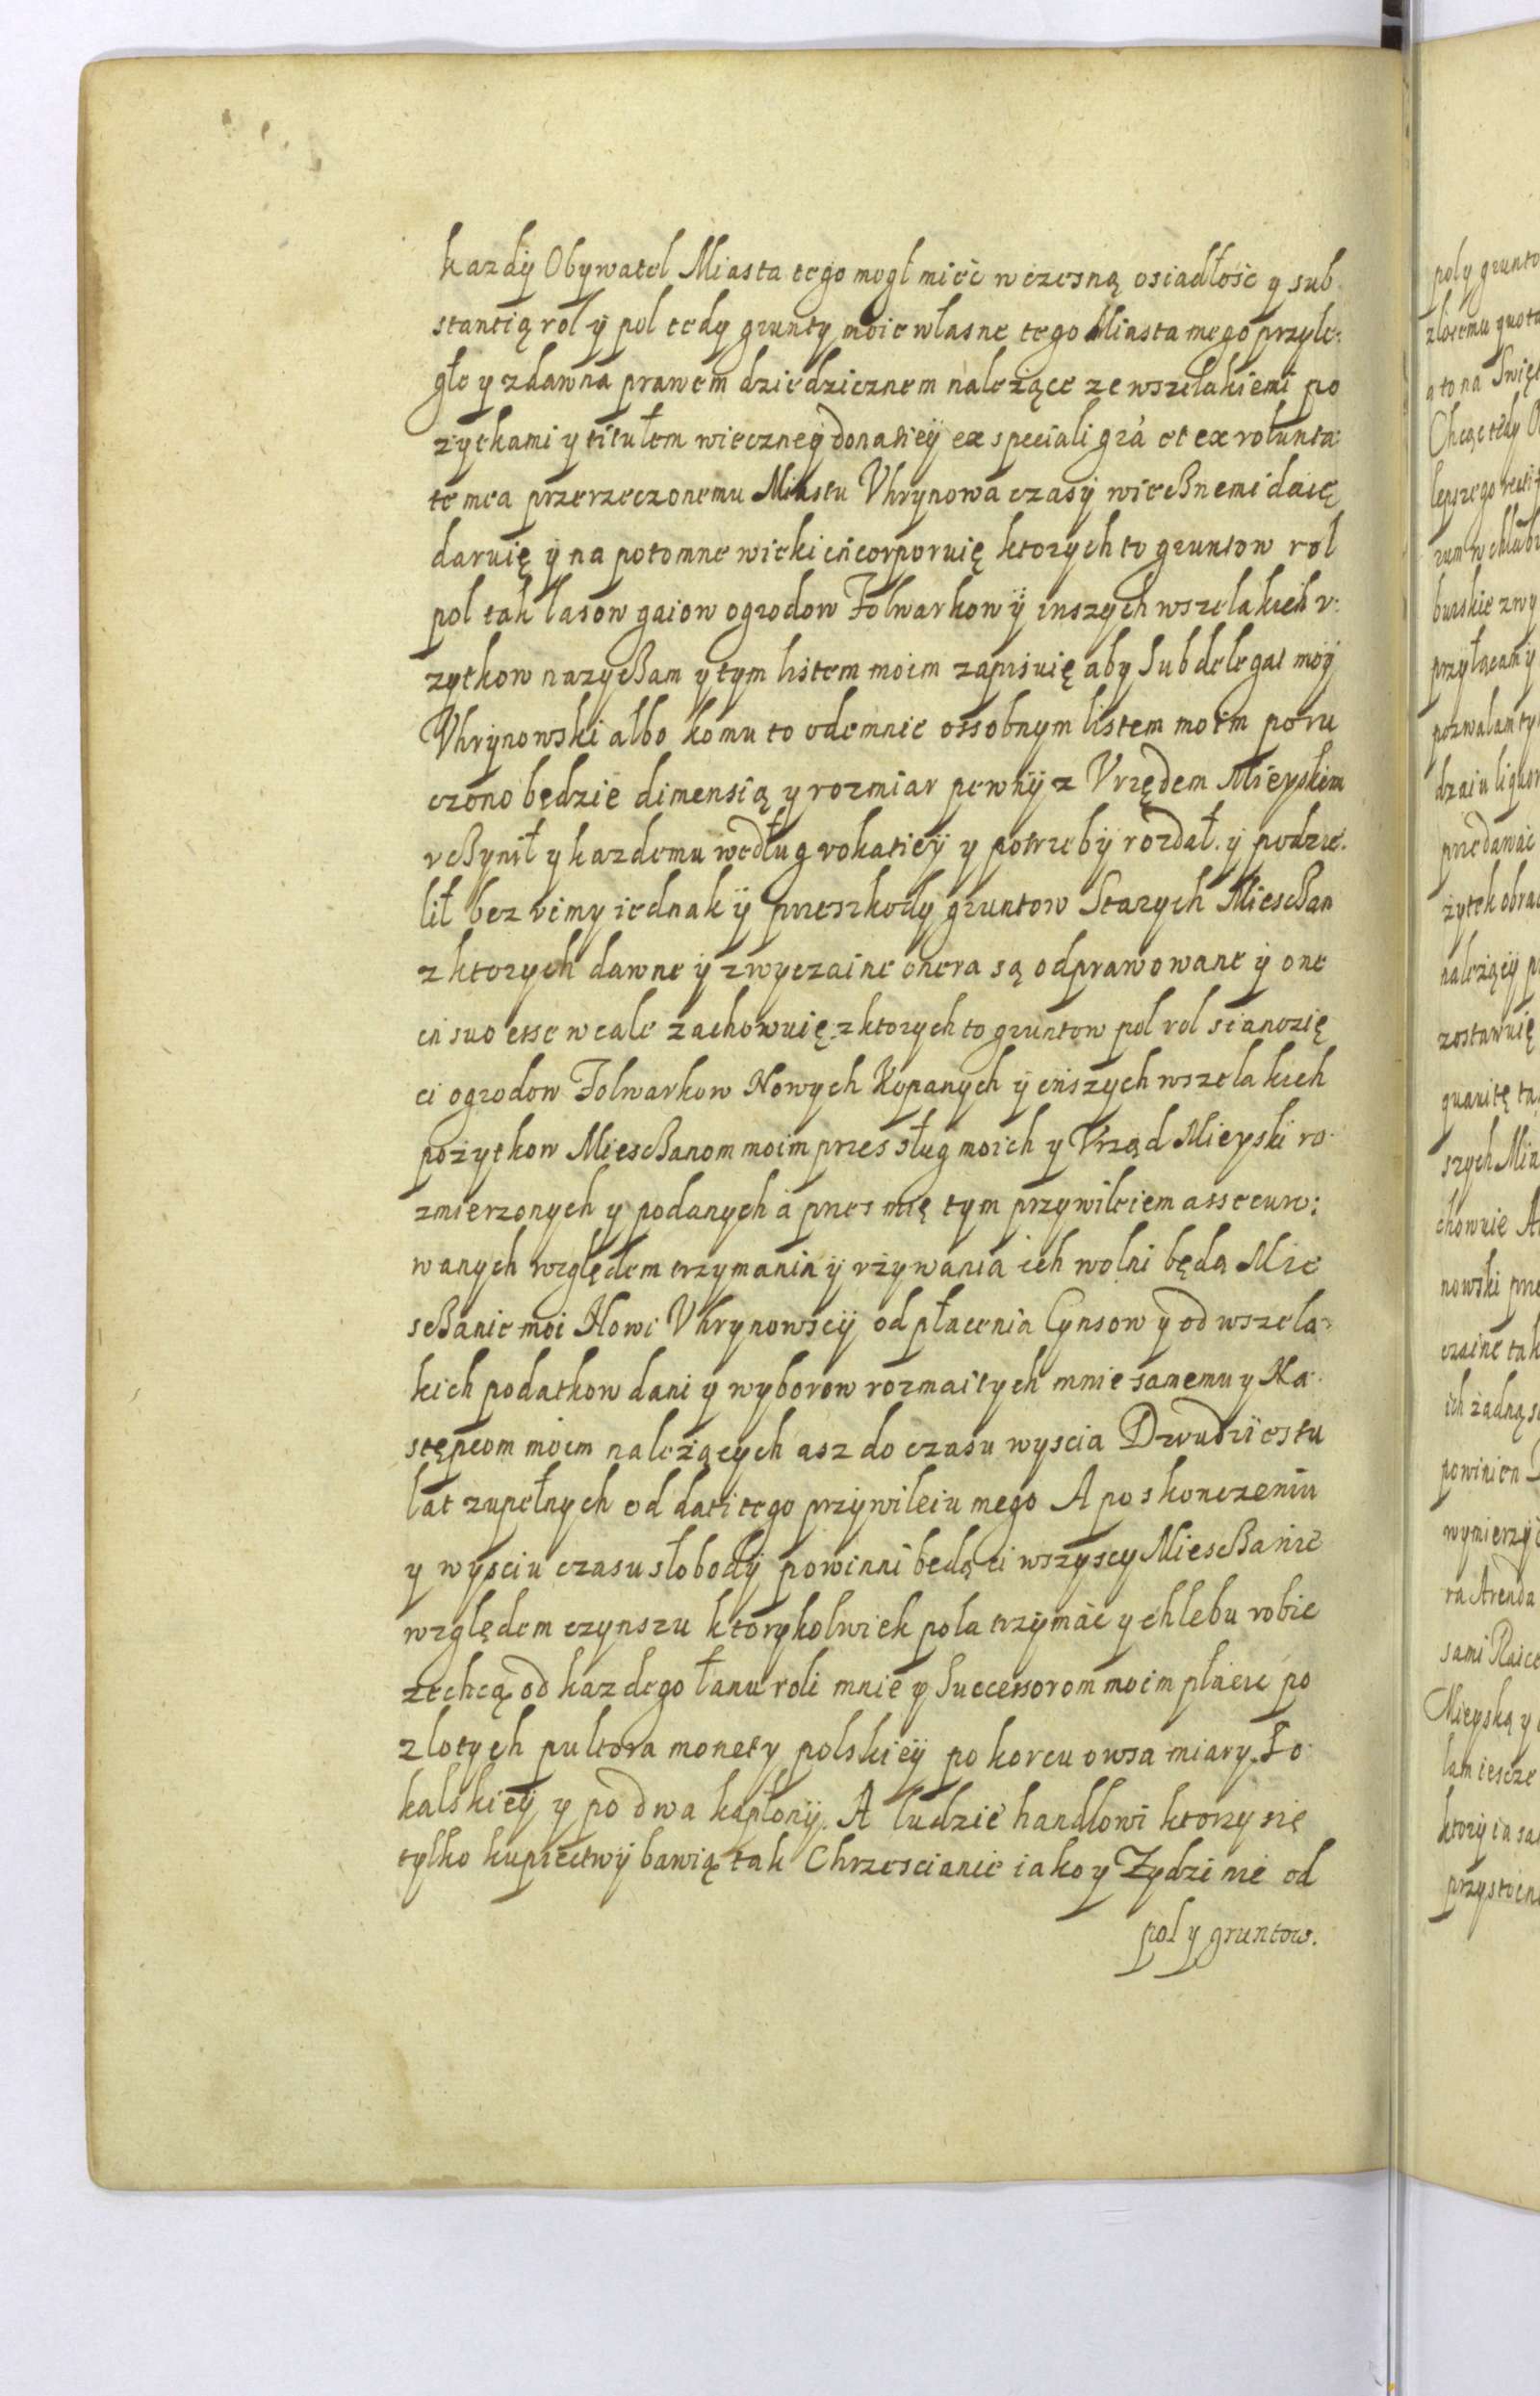 kazdÿ Obywatel Miasta tego mogł mieć wczesną osiadłość y sub
stantią rol ÿ pol tedy grunty moie własne tego Miasta mego przyle:
głe y zdawna prawem dziedzicznem należące ze wszelakiemi po
zytkami y titułem wieczneÿ donatieÿ ex speciali gra et ex volunta:
te mea przerzeczonemu Miastu Vhrynowa czasÿ wiecznemi daię
daruię ÿ na potomne wieki incorporuię ktorych to gruntow rol
pol łak lasow gaiow ogrodow Folwarkow ÿ inszych wszelakich v:
zytkow nazyczam y tym listem moim zapisuię aby Subdelegat moÿ
Vhrynowski albo komu to odemnie ossobnym listem moim poru
czono będzie dimensią y rozmiar pewnÿ z Vrzędem Mieyskim
vczynił y kazdemu według vokatieÿ y potrzebÿ rozdał. ÿ podzie.
lił bez vimy iednak ÿ przeszkody gruntow Starych Miesczan
z ktorych dawne ÿ zwyczaine onera są odprawowane ÿ one
in suo esse wcale zachowuię. z ktorych to gruntow pol rol sianozię
ci ogrodow Folwarkow Nowych Kopanych ÿ inszych wszelakich
pożytkow Miesczanom moim przes sług moich y Vrząd Mieyski ro.
zmierzonych y podanych a przes mię tym przywileiem assecuro:
wanych względem trzymania ÿ vżywania ich wolni będą Mie
sczanie moi Nowi Vhrynowscÿ od płacenia Cynsow ÿ od wszela=
kich podatkow dani y wyborow rozmaitych mnie samemu y Na.
stępcom moim należących asz do czasu wyscia Dwudziestu
lat zupełnych od dati tego przÿwileiu mego A po skonczeniu
y wyściu czasu słobodÿ powinni będą ci wszyscy Miesczanie
względem czynszu ktorykolwiek pola trzÿmać y chlebu robic
zechcą od kazdego łanu roli mnie y Successorom moim płacić po
zlotych pultora monety polskieÿ po korcu owsa miary So.
kalskieÿ y po dwa kapłonÿ. A ludzie handlowi ktorzy się
tylko kupiectwÿ bawią tak Chrzescianie iako y Zydzi nie od
pol y gruntow.
poly grunto
zlotemu
a to na Swię
Chcąc tedy
lepszego
przyłącam ÿ
pozwalam ty
przedawać
zytek obrac
należącÿ p
zostawuię
szych Mia
chowuie
nowski prz
czaine tak
ich żadną
powinien
wymierzÿć
ra Arenda
sami Raice
Mieyską y
ktorÿ